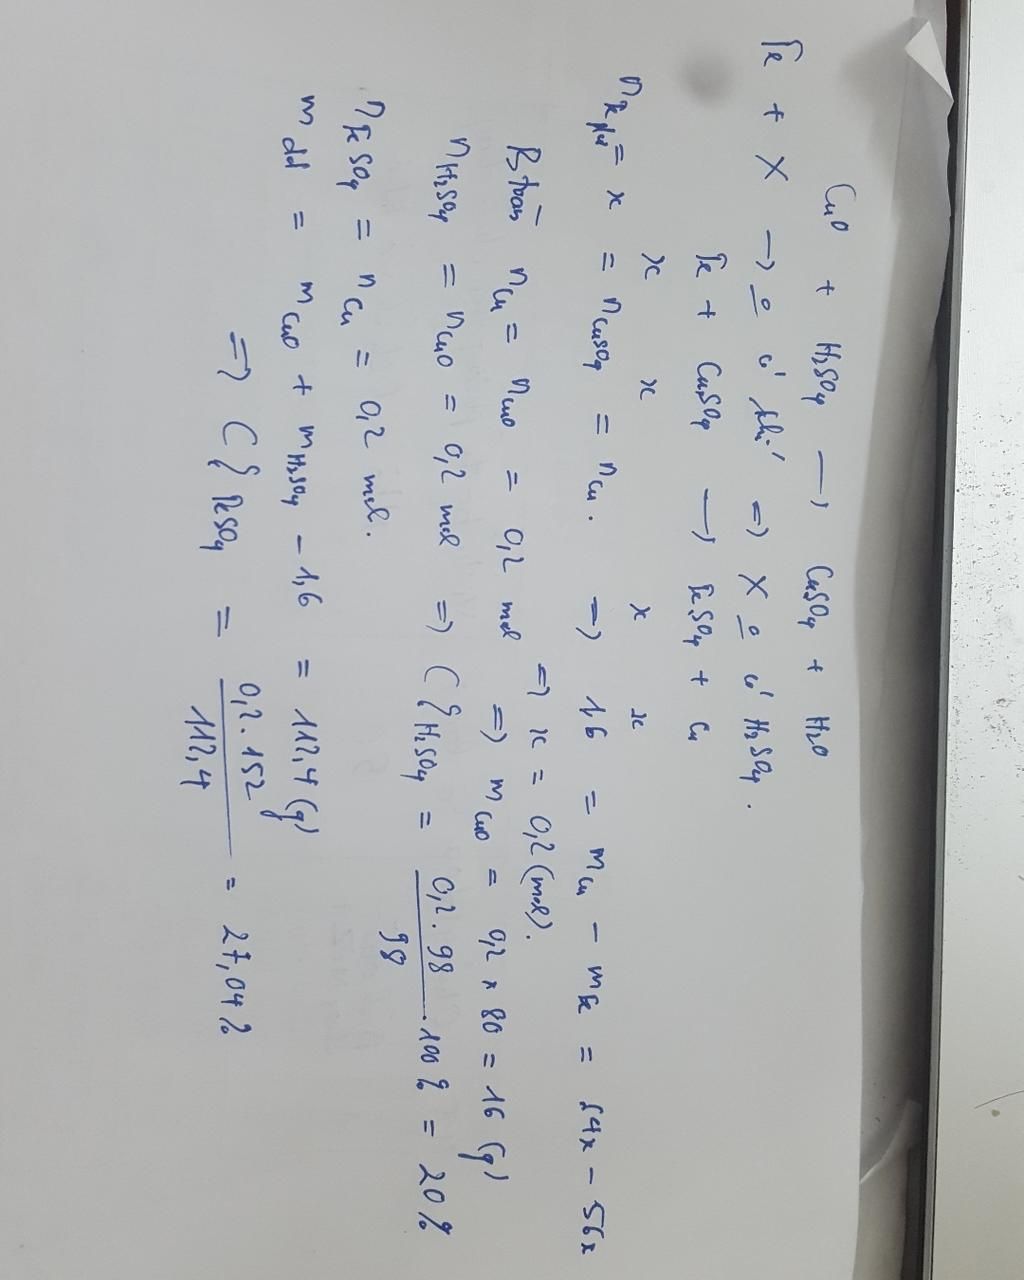 CuO + H₂SO₄ → CuSO₄ + H₂O
Fe + X → o̲ có khí ⇒ X o̲ có H₂SO₄.
Fe + CuSO₄ → FeSO₄ + Cu
x x x x
n Fe pứ = x = n CuSO₄ = n Cu. → 1,6 = m Cu - m Fe = 64x - 56x
⇒ x = 0,2 (mol).
B toàn n Cu = n CuO = 0,2 mol ⇒ m CuO = 0,2 × 80 = 16 (g)
n H₂SO₄ = n CuO = 0,2 mol ⇒ C% H₂SO₄ = 0,2 . 98 / 98 . 100% = 20%
n FeSO₄ = n Cu = 0,2 mol.
m dd = m CuO + m H₂SO₄ - 1,6 = 112,4 (g)
⇒ C% FeSO₄ = 0,2 . 152 / 112,4 = 27,04%